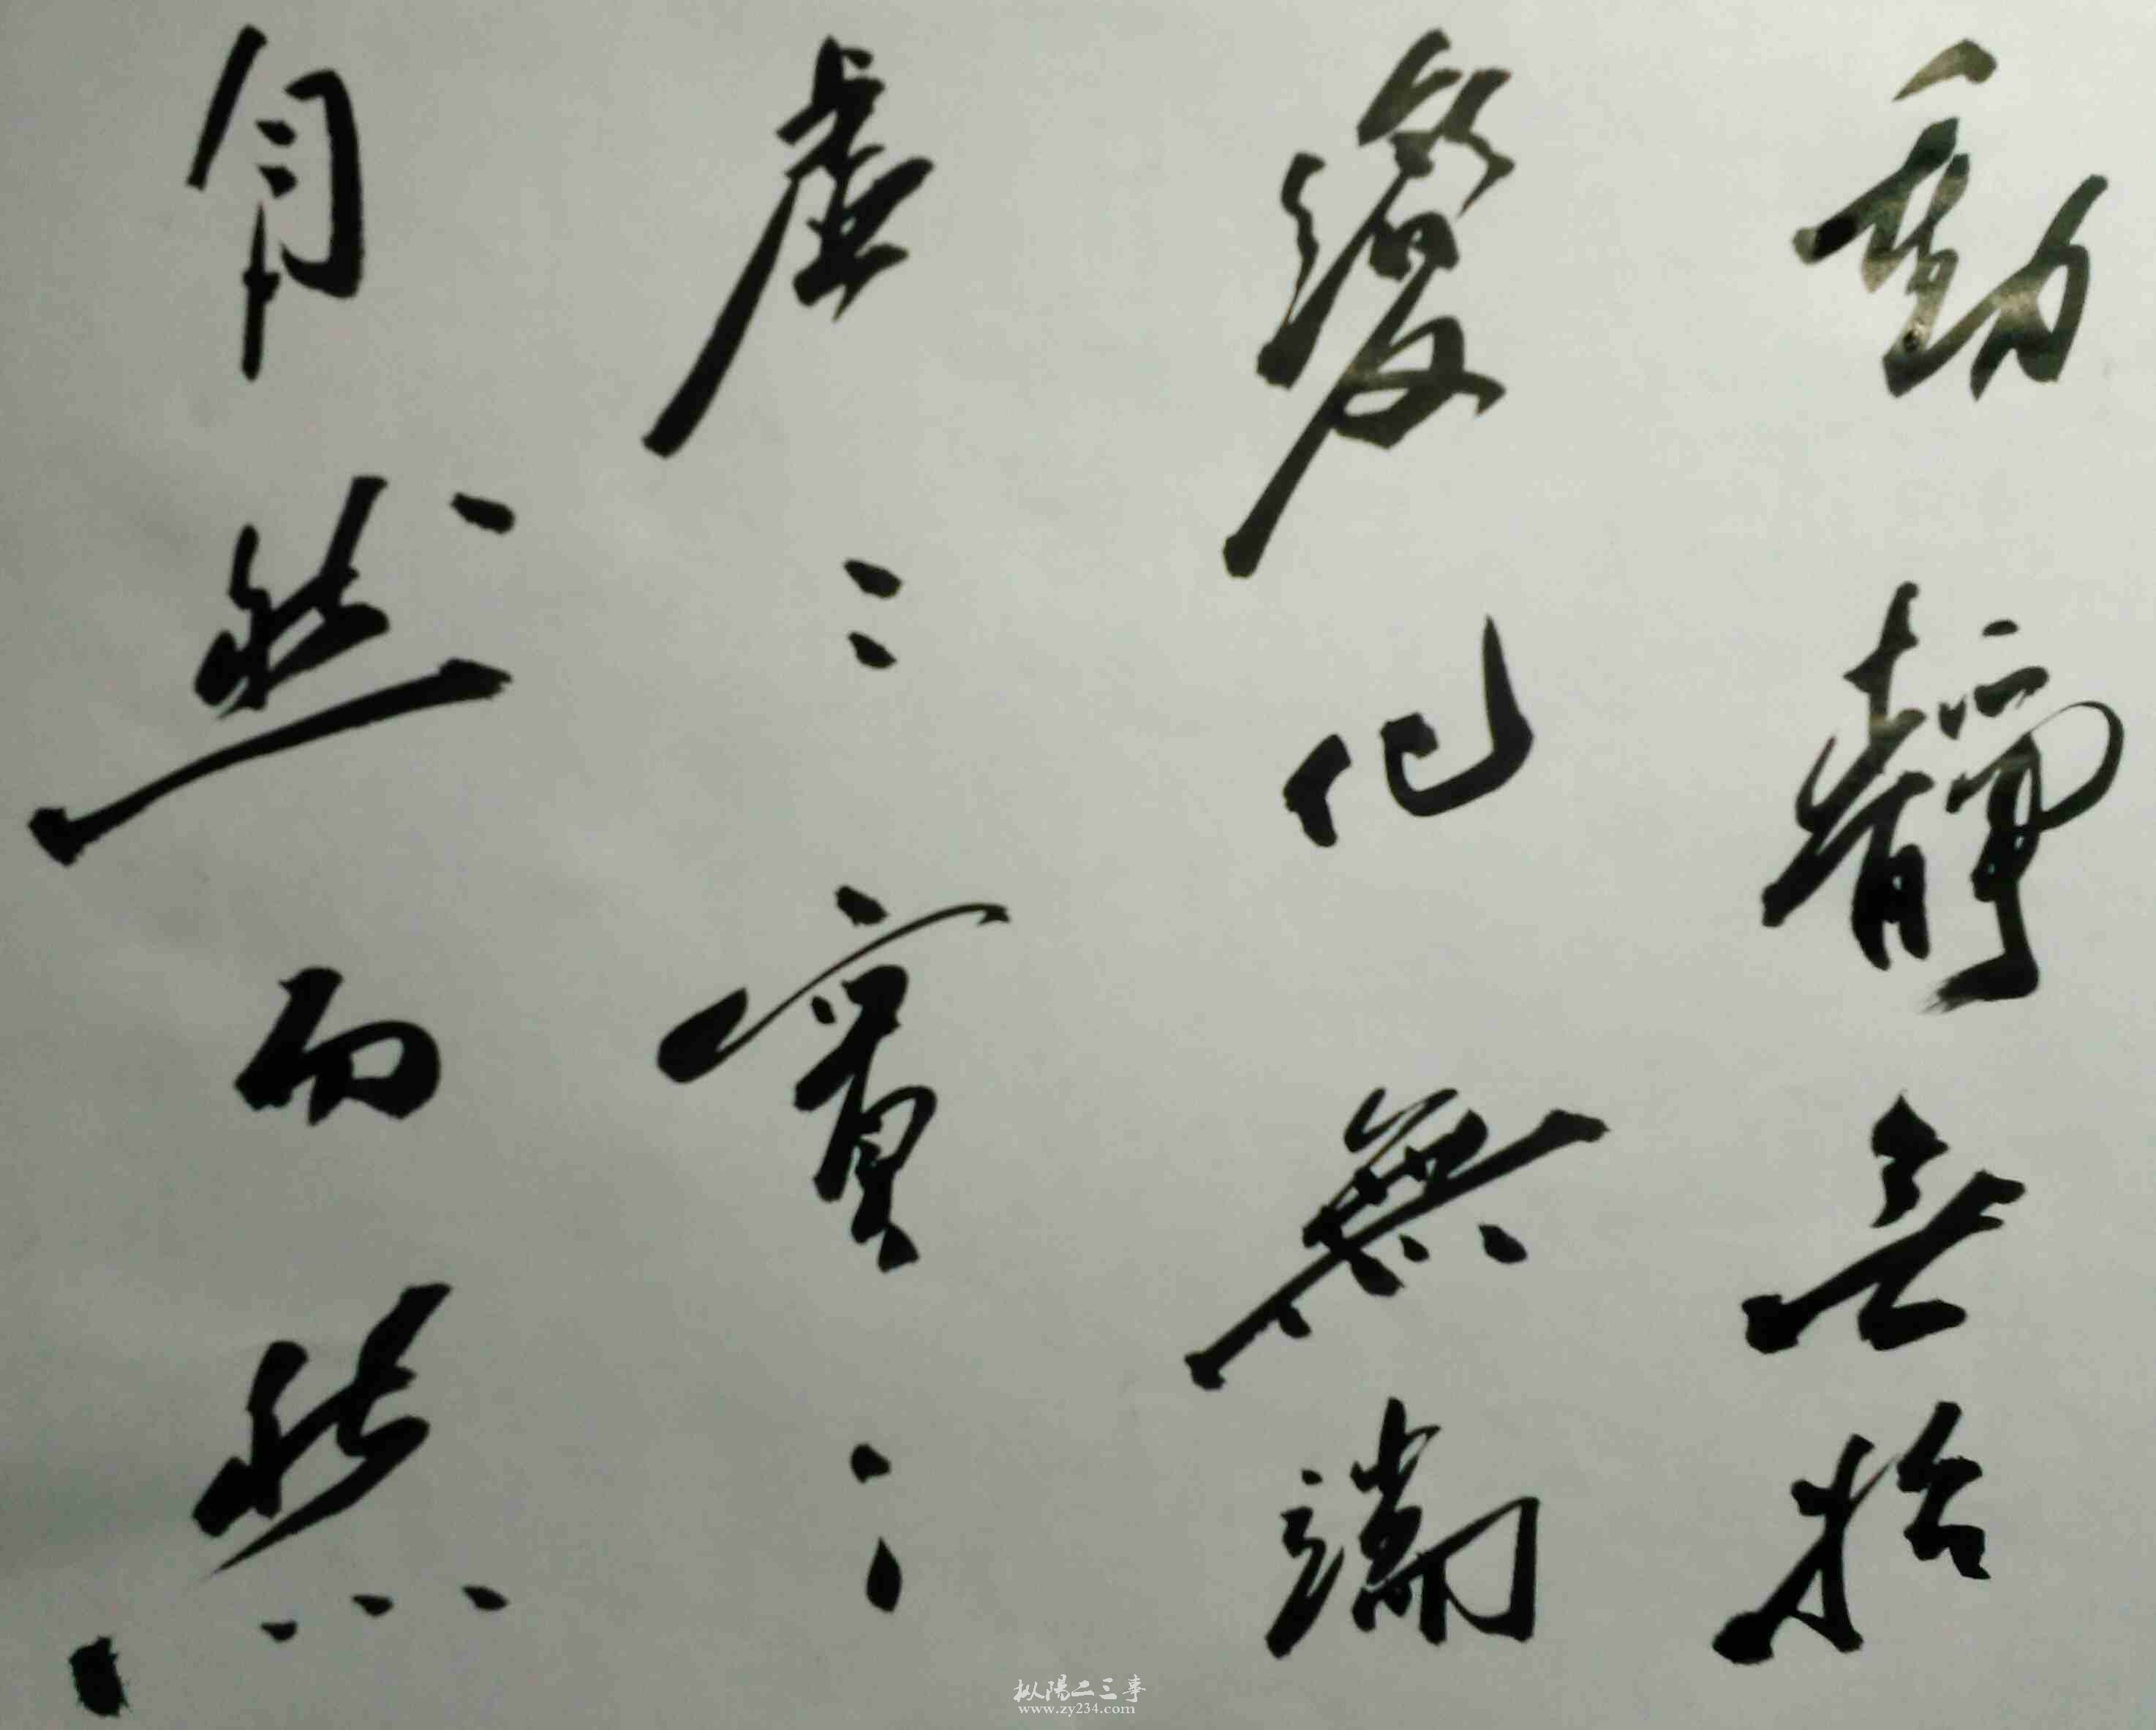 動靜无始
變化無端
虛〻實〻
自然而然
枞陽二三事
www.zy234.com